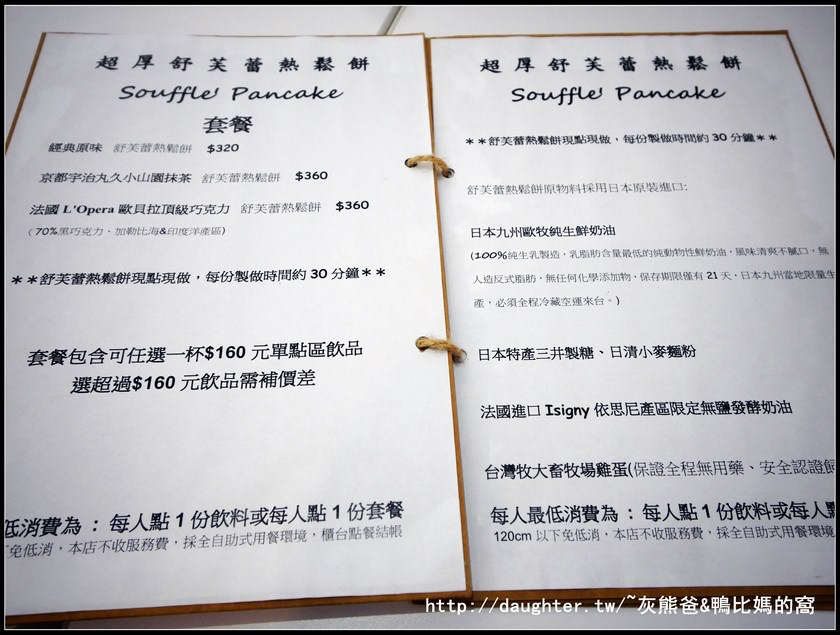 超厚舒芙蕾熱鬆餅
Souffle' Pancake
套餐
經典原味 舒芙蕾熱鬆餅 $320
京都宇治丸久小山園抹茶 舒芙蕾熱鬆餅 $360
法國 L'Opera 歐貝拉頂級巧克力 舒芙蕾熱鬆餅 $360
(70%黑巧克力、加勒比海&印度洋產區)
**舒芙蕾熱鬆餅現點現做，每份製做時間約 30 分鐘**
套餐包含可任選一杯$160 元單點區飲品
選超過$160 元飲品需補價差
低消費為：每人點 1 份飲料或每人點 1 份套餐
下免低消，本店不收服務費，採全自助式用餐環境，櫃台點餐結帳
超厚舒芙蕾熱鬆餅
Souffle' Pancake
**舒芙蕾熱鬆餅現點現做，每份製做時間約 30 分鐘**
舒芙蕾熱鬆餅原物料採用日本原裝進口:
日本九州歐牧純生鮮奶油
(100%純生乳製造，乳脂肪含量最低的純動物性鮮奶油，風味清爽不膩口，無
人造反式脂肪，無任何化學添加物，保存期限僅有 21 天，日本九州當地限量生
產，必須全程冷藏空運來台。)
日本特產三井製糖、日清小麥麵粉
法國進口 Isigny 依思尼產區限定無鹽發酵奶油
台灣牧大畜牧場雞蛋(保證全程無用藥、安全認證飼
每人最低消費為：每人點 1 份飲料或每人點
120cm 以下免低消，本店不收服務費，採全自助式用餐環境
http://daughter.tw/~灰熊爸&鴨比媽的窩